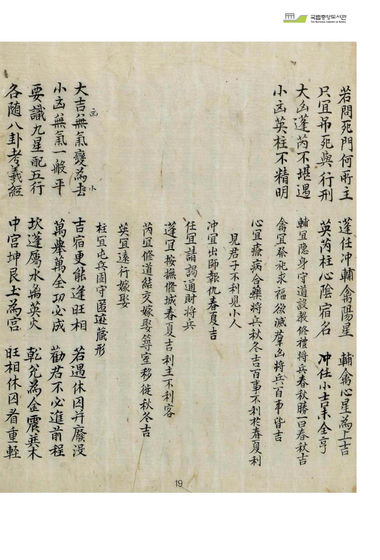 국립중앙도서관
若問死門何所主 蓬任冲輔禽陽星 輔禽心星為上吉
只宜吊死與行刑 英芮柱心陰宿名 冲任小吉未全亨
大凶蓬芮不堪遇 輔宜隱身守道設敎修禮將兵春秋勝一曰春秋吉
小凶英柱不精明 禽宜祭祀求福欲滅凶將兵百事皆吉
心宜療病合藥將兵秋冬吉百事不利於春夏利
見君子不利見小人
冲宜出師報仇春夏吉
任宜請謁通財將兵
蓬宜按撫修城春夏吉利主不利客
芮宜修道結交嫁娶等室移徙秋冬吉
英宜遠行嫁娶
柱宜屯兵固守匿迹藏形
大吉無氣變為吉 吉宿更能逢旺相 若遇休囚并廢没
凶 小
小凶無氣一般平 萬擧萬全功必成 勸君不必進前程
要識九星配五行 坎蓬屬水离英火 乾兌為金震巽木
各随八卦考義經 中宮坤艮土為宮 旺相休囚看重輕
19